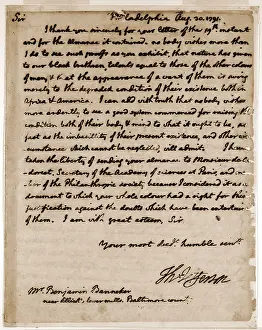 Sir Philadelphia Aug. 30. 1791.
I thank you sincerely for your letter of the 19th. instant
and for the almanac it contained. no body wishes more than
I do to see such proofs as you exhibit, that nature has given
to our black brethren, talents equal to those of the other colours
of men, & that the appearance of a want of them is owing
merely to the degraded condition of their existence both in
Africa & America. I can add with truth that no body wishes
more ardently to see a good system commenced for raising the
condition both of their body & mind to what it ought to be, as
fast as the imbecillity of their present existence, and other cir-
cumstance which cannot be neglected, will admit. I have
taken the liberty of sending your almanac to Monsieur de Con-
dorcet, Secretary of the Academy of sciences at Paris, and mem-
ber of the Philanthropic society because I considered it as a
document to which your whole colour had a right for their
justification against the doubts which have been entertained
of them. I am with great esteem, Sir,
Your most obedt. humble servt.
Th: Jefferson
Mr. Benjamin Banneker
near Ellicot's lower mills. Baltimore county.